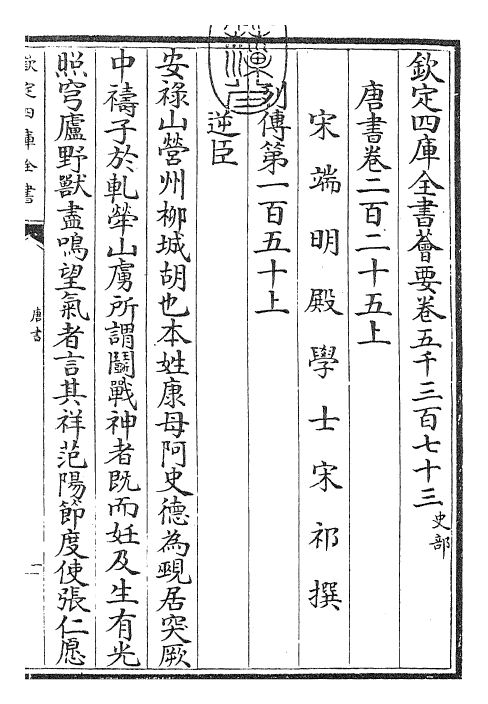 欽定四庫全書薈要卷五千三百七十三 史部
唐書卷二百二十五上
宋端明殿學士宋祁撰
列傳第一百五十上
逆臣
安祿山營州柳城胡也本姓康母阿史德為覡居突厥
中禱子於軋犖山虜所謂鬬戰神者既而妊及生有光
照穹廬野獸盡鳴望氣者言其祥范陽節度使張仁愿
欽定四庫全書
唐書
一